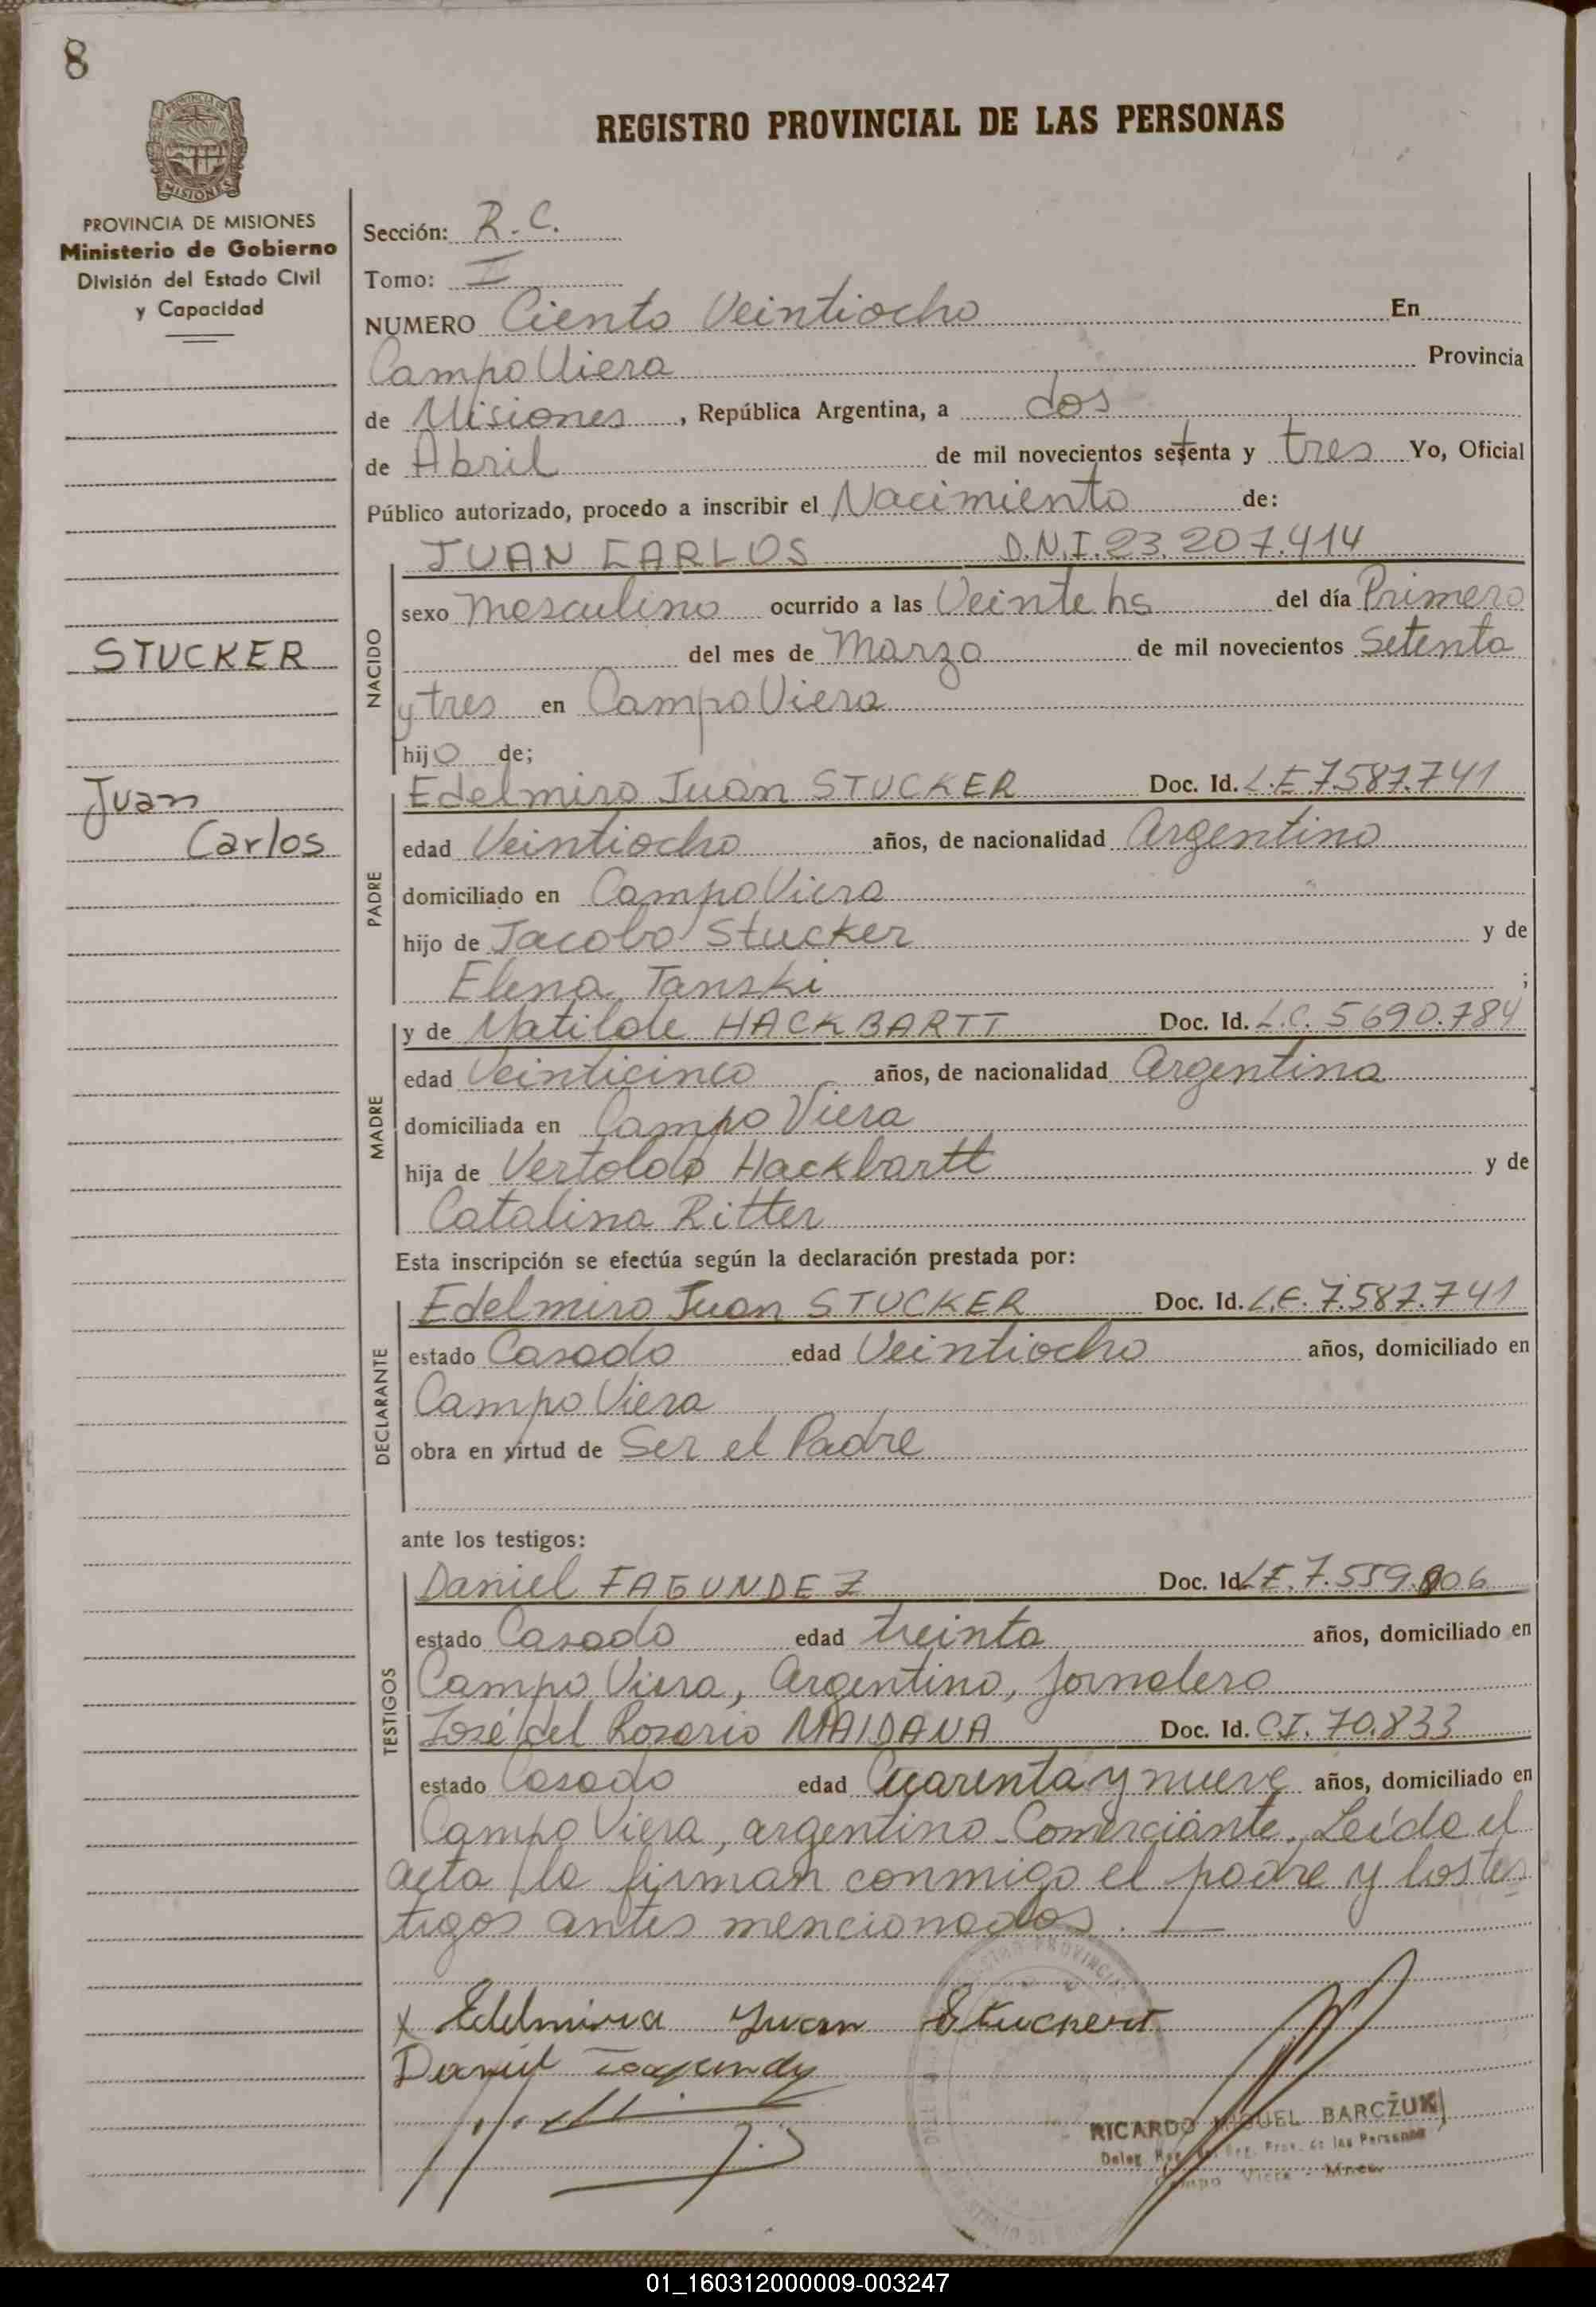 8
REGISTRO PROVINCIAL DE LAS PERSONAS
PROVINCIA DE MISIONES
Ministerio de Gobierno
División del Estado Civil
y Capacidad
STUCKER
Juan
Carlos
Sección: R.C.
Tomo: II
NUMERO Ciento Veintiocho En
Campo Viera Provincia
de Misiones, República Argentina, a dos
de Abril de mil novecientos setenta y tres Yo, Oficial
Público autorizado, procedo a inscribir el Nacimiento de:
JUAN CARLOS D.N.I. 23.207.414
NACIDO
sexo masculino ocurrido a las Veinte hs del día Primero
del mes de Marzo de mil novecientos Setenta
y tres en Campo Viera
hijo de;
PADRE
Edelmiro Juan STUCKER Doc. Id. L.E 7.587.741
edad Veintiocho años, de nacionalidad Argentino
domiciliado en Campo Viera
hijo de Jacobo Stucker y de
Elena Tanski ;
MADRE
y de Matilde HACKBARTT Doc. Id. L.C. 5690.784
edad Veinticinco años, de nacionalidad Argentina
domiciliada en Campo Viera
hija de Vertoldo Hackbartt y de
Catalina Ritter
Esta inscripción se efectúa según la declaración prestada por:
DECLARANTE
Edelmiro Juan STUCKER Doc. Id. L.E. 7.587.741
estado Casado edad Veintiocho años, domiciliado en
Campo Viera
obra en virtud de Ser el Padre
ante los testigos:
TESTIGOS
Daniel FAGUNDEZ Doc. Id. L.E. 7.559.806
estado Casado edad treinta años, domiciliado en
Campo Viera, Argentino, Jornalero
José del Rosario MAIDANA Doc. Id. C.I. 70.833
estado Casado edad Cuarenta y nueve años, domiciliado en
Campo Viera, argentino - Comerciante. Leída el
acta la firman conmigo el padre y los tes
tigos antes mencionados. —
x Edelmiro Juan Stuckert
Daniel
RICARDO MIGUEL BARCZUK
Deleg. Reg. Prov. de las Personas
Campo Viera - Mnes.
01_160312000009-003247